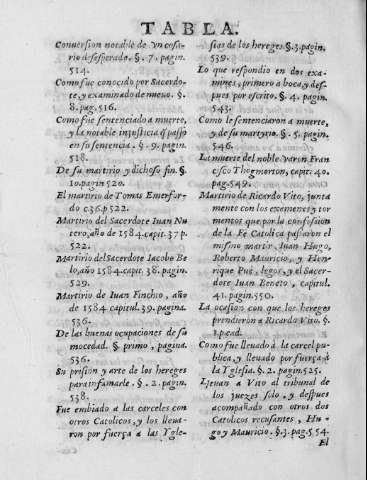 TABLA.
Conuersion notable de vn cosa-
rio desesperado. §. 7. pagin.
514.
Como fue conocido por Sacerdo-
te, y examinado de nueuo. §.
8. pag. 516.
Como fue sentenciado a muerte,
y la notable injusticia q̃ passò
en so sentencia. §. 9. pagin.
518.
De su martirio y dichoso fin. §.
10. pagin 520.
El martirio de Tomas Emerfor-
do c 36. p 522.
Martirio del Sacerdote Iuan Nu-
tero, año de 1584. capit. 37 p.
522.
Martirio del Sacerdote Iacobo Be
lo, año 1584. capit. 38. pagin.
529.
Martirio de Iuan Finchio, año
de 1584 capitul. 39. pagina.
536.
De las buenas ocupaciones de su
mocedad. § primo, pagina.
536.
Su prision y arte de los hereges
para infamarle. §. 2. pagin.
538.
Fue embiado a las carceles con
otros Catolicos, y los lleua-
ron por fuerça a las Ygle-
sias de los hereges. §. 3. pagin.
539.
Lo que respondio en dos exa-
mines, primero a boca, y des-
pues por escrito. §. 4. pagin.
543.
Como le sentenciaron a muerte,
y de su martyrio. §. 5. pagin.
546.
La muerte del noble varon Fran
cisco Thogmorton, capit. 40.
pag. 549.
Martirio de Ricardo Vito, junta
mente con los examenes y tor
mentos que por la confession
de la Fè Catolica passaron el
mismo martir, Iuan Hugo,
Roberto Mauricio, y Hen-
rique Pui, legos, y el Sacer-
dote Iuan Beneto, capitul.
41. pagin. 550.
La ocasion con que los hereges
prendieron a Ricardo Vito. §.
1. pead.
Como fue lleuado à la carcel pu
blica, y lleuado por fuerça à
la Yglesia. §. 2. pagin. 525.
Lleuan a Vito al tribunal de
los juezes solo, y despues
acompañado con otros dos
Catolicos recusantes, Hu-
go y Mauricio. §. 3. pag. 554.
El